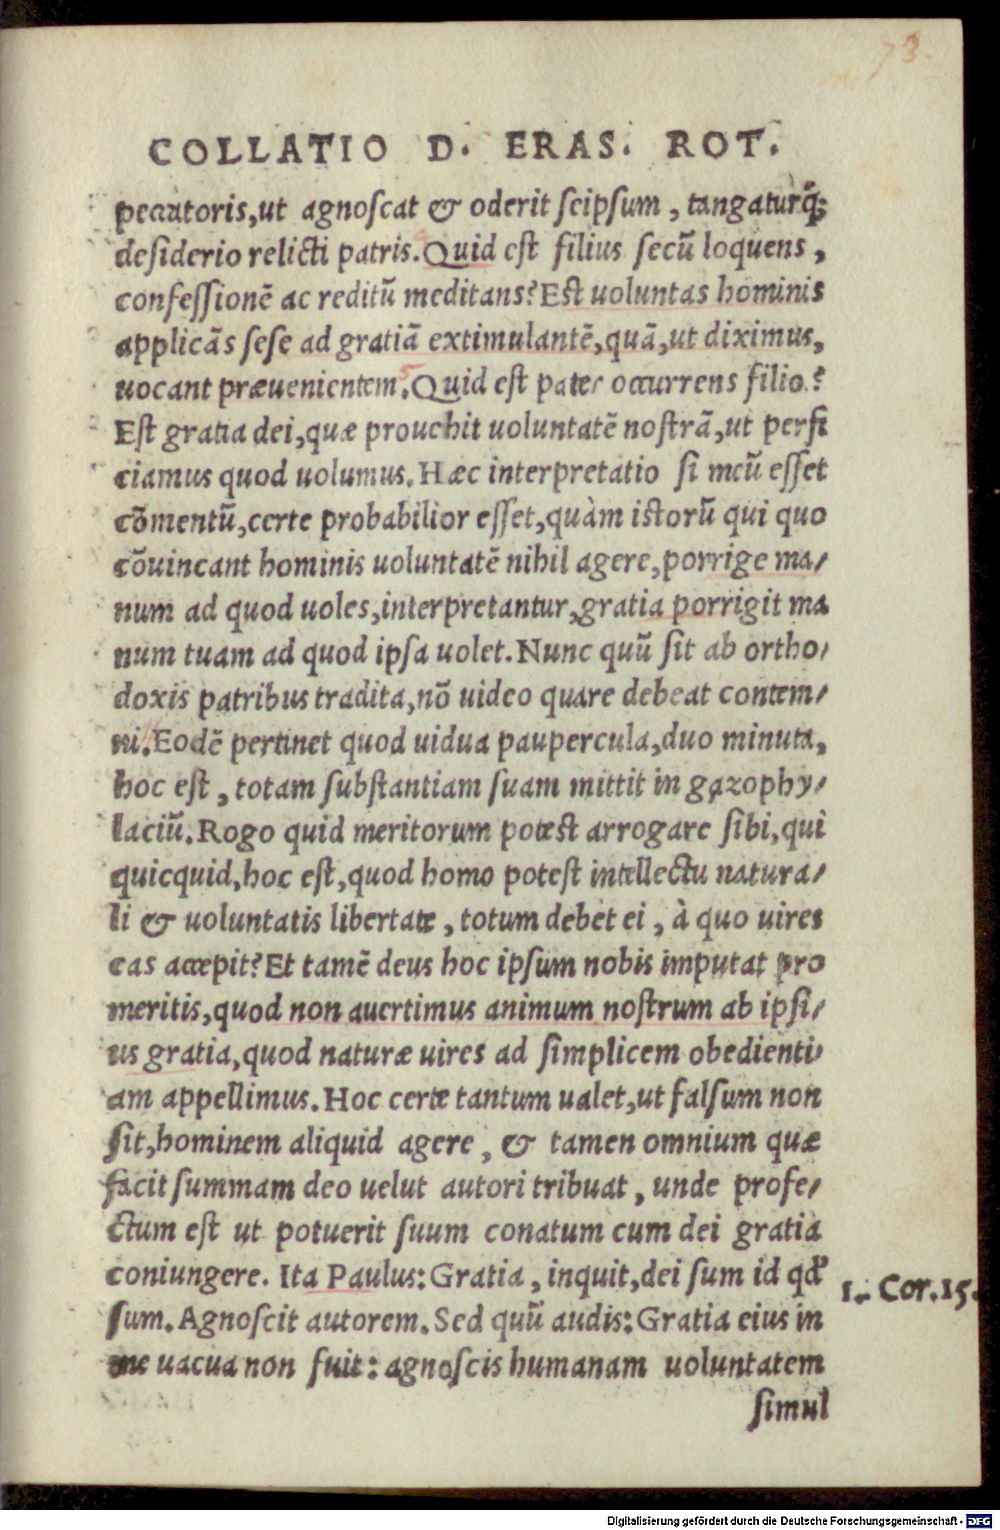 73.
COLLATIO D. ERAS. ROT.
peccatoris,ut agnoscat & oderit seipsum, tangaturq́;
desiderio relicti patris.Quid est filius secũ loquens,
confessionẽ ac reditũ meditans?Est uoluntas hominis
applicãs sese ad gratiã extimulantẽ,quã,ut diximus,
uocant præuenientem.Quid est pater occurrens filio?
Est gratia dei,quæ prouehit uoluntatẽ nostrã,ut perfi
ciamus quod uolumus.Hæc interpretatio si meũ esset
cõmentũ,certe probabilior esset,quàm istorũ qui quo
cõuincant hominis uoluntatẽ nihil agere,porrige ma/
num ad quod uoles,interpretantur,gratia porrigit ma
num tuam ad quod ipsa uolet.Nunc quũ sit ab ortho/
doxis patribus tradita,nõ uideo quare debeat contem/
ni.Eodẽ pertinet quod uidua paupercula,duo minuta,
hoc est, totam substantiam suam mittit in gazophy/
laciũ.Rogo quid meritorum potest arrogare sibi,qui
quicquid,hoc est,quod homo potest intellectu natura/
li & uoluntatis libertate, totum debet ei, à quo uires
eas accepit?Et tamẽ deus hoc ipsum nobis imputat pro
meritis,quod non auertimus animum nostrum ab ipsi/
us gratia,quod naturæ uires ad simplicem obedienti/
am appellimus.Hoc certe tantum ualet,ut falsum non
sit,hominem aliquid agere, & tamen omnium quæ
facit summam deo uelut autori tribuat, unde profe/
ctum est ut potuerit suum conatum cum dei gratia
coniungere. Ita Paulus:Gratia, inquit,dei sum id qđ
1. Cor.15.
sum.Agnoscit autorem.Sed quũ audis:Gratia eius in
me uacua non fuit: agnoscis humanam uoluntatem
simul
Digitalisierung gefördert durch die Deutsche Forschungsgemeinschaft - DFG